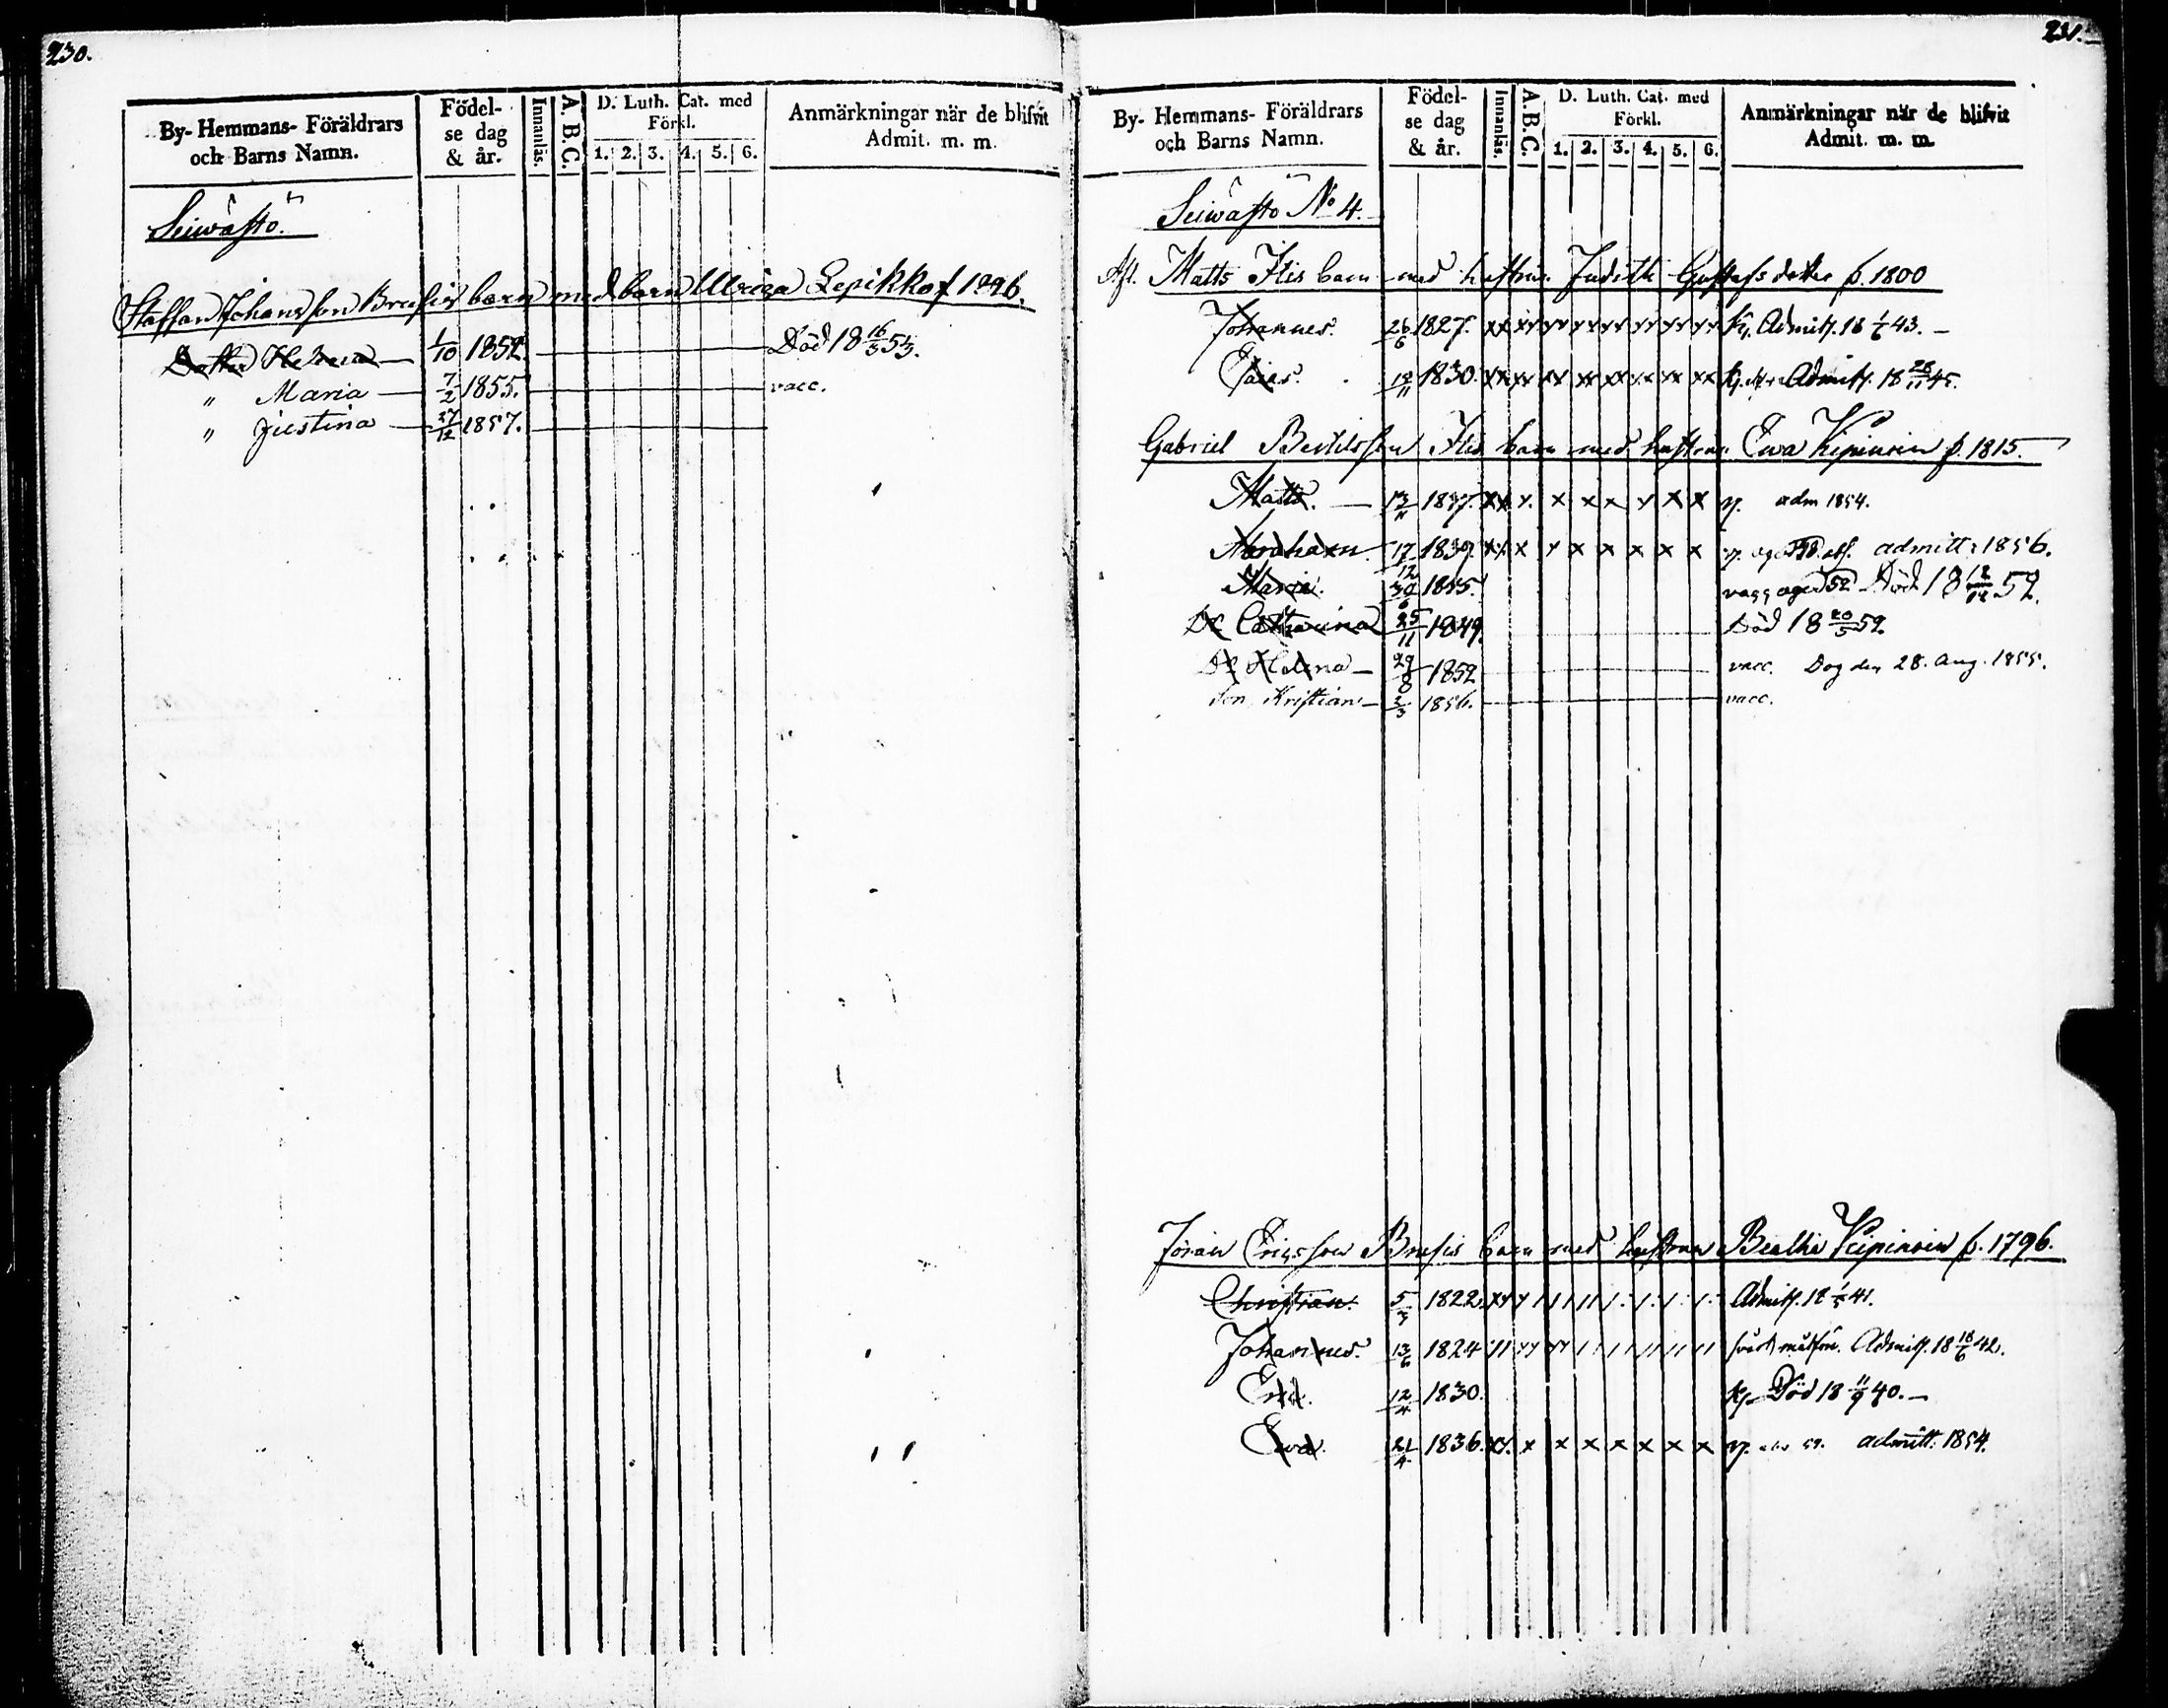 230.
By- Hemmans- Föräldrars och Barns Namn.
Födel- se dag & år.
Innanläs.
A. B. C.
D. Luth. Cat. med Förkl.
1. 2. 3. 4. 5. 6.
Anmärkningar när de blifvit Admit. m. m.
Seiwästö.
Staffan Johansson Brusis barn med barn Ulrica Lepikko f 1826.
Dotter Helena 1/10 1852. Död 18 16/3 53.
" Maria 7/2 1855. vacc.
" Justina 27/12 1857.
231.
By- Hemmans- Föräldrars och Barns Namn.
Födel- se dag & år.
Innanläs.
A.B.C.
D. Luth. Cat. med Förkl.
1. 2. 3. 4. 5. 6.
Anmärkningar när de blifvit Admit. m. m.
Seiwästö No 4.
Afl. Matts Ilis barn med hustrun Judith Gustafsdotter f. 1800
Johannes. 26/6 1827. xx xx xx xx xx xx xx xx Admitt. 18 1/6 43.
Esaias. 1830. xx xx xx xx xx xx xx xx Admitt. 18 45.
Gabriel Bertilsson Ilis barn med hustrun Ewa Kipinoin f. 1815.
Matts. 13/11 1837. xx x. x x x x x x v. adm 1854.
Abraham 17/12 1839. xx x x x x x x x v. admitt: 1856.
Maria. 30/6 1845. Död 18 52.
Dr Catharina 25/11 1849. Död 18 20/5 52.
Dr Helena 29/8 1852 vacc. Dog den 28. Aug. 1855.
Son Kristian 3/3 1856. vacc.
Jöran Ericsson Brusis barn med hustrun Beatha Kipinoin f. 1796.
Christian. 5/3 1822. Admitt. 18 41.
Johannes. 13/6 1824 Admitt. 18 18/6 42.
Eric. 12/4 1830. Död 18 11/9 40.
Ewa. 21/4 1836. xx. x x x x x x x v. admitt: 1854.